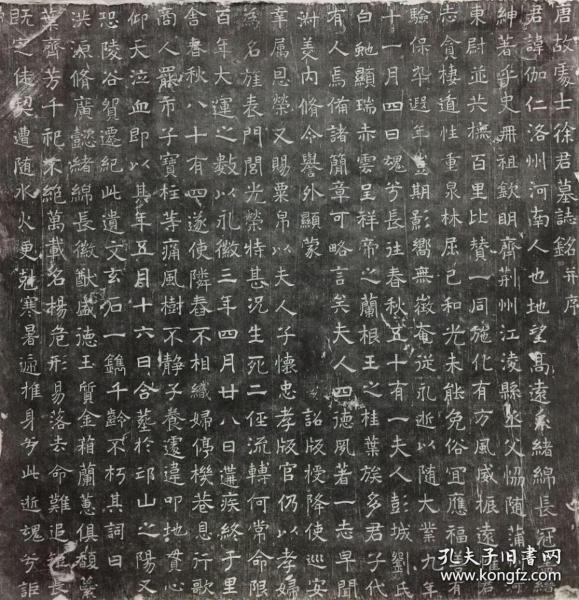 唐故處士徐君墓誌銘并序
君諱伽仁洛州河南人也地望高遠系緒綿長冠
紳著乎史冊祖欽明齊荆州江凌縣丞父恊隨蒲
東尉並共撫百里比贊一同施化有方風威振遠君
志貪棲道性重泉林屈己和光未能免俗冝應福
驗保年遐壹期影嚮無徵奄從永逝以隨大業九年
十一月四日塊兮長往春秋五十有一夫人彭城劉氏
白虵顯瑞赤雲呈祥帝之蘭根王之桂葉族多君子代
有人焉備諸簡章可略言矣夫人四德夙著一志早聞
淑美內脩令譽外顯蒙 詔版授降使巡安
幸属恩榮又賜粟帛以夫人子懷忠孝版官仍以孝婦
為名旌表門閭光榮特甚况生死二俓流轉何常命限
百年大運之數以永徽三年四月廿八日遘疾終于里
舍春秋八十有四遂使隣舂不相織婦停機巷息行歌
商人罷市子寶柱等痛風樹不靜子養遽違叩地貫心
仰天泣血即以其年五月十六日合塟於邙山之陽又
恐陵谷貿遷紀此遺文玄石一鐫千齡不朽其詞曰
洪源脩廣懿緒綿長徽猷盛德玉質金箱蘭蕙俱馥
葉齊芳千祀不絕萬載名楊危形易落去命難追
既之使契遭随水火更尅寒暑遞推身兮此逝塊兮詎